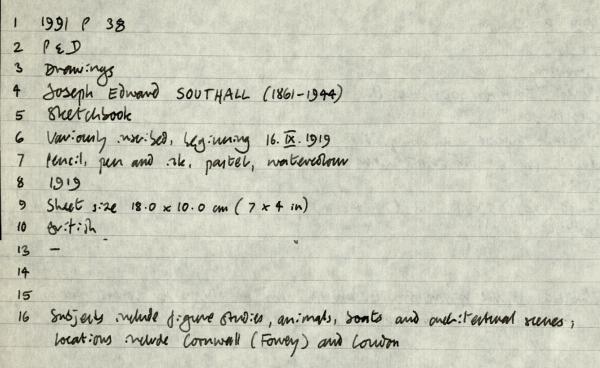 1 1991 P 38
2 P & D
3 Drawings
4 Joseph Edward SOUTHALL (1861-1944)
5 Sketchbook
6 Variously inscribed, beginning 16.IX.1919
7 Pencil, pen and ink, pastel, watercolour
8 1919
9 Sheet size 18.0 x 10.0 cm (7 x 4 in)
10 British
13 –
14
15
16 Subjects include figure studies, animals, boats and architectural scenes;
locations include Cornwall (Fowey) and London